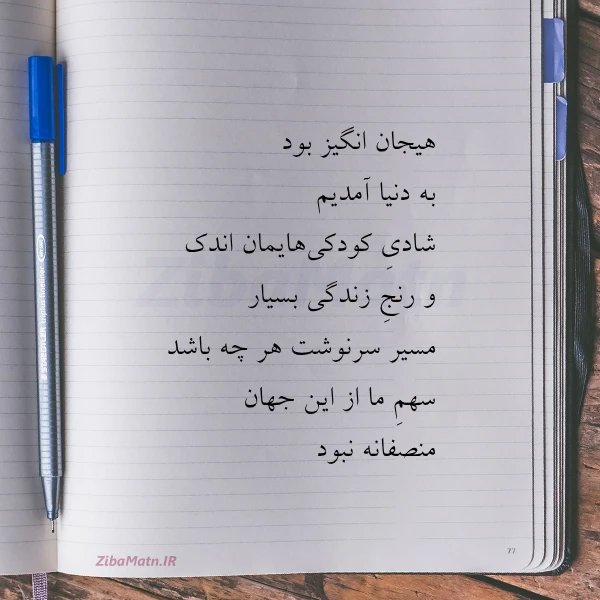 هیجان انگیز بود
به دنیا آمدیم
شادیِ کودکی‌هایمان اندک
و رنجِ زندگی بسیار
مسیر سرنوشت هر چه باشد
سهمِ ما از این جهان
منصفانه نبود
ZibaMatn.IR